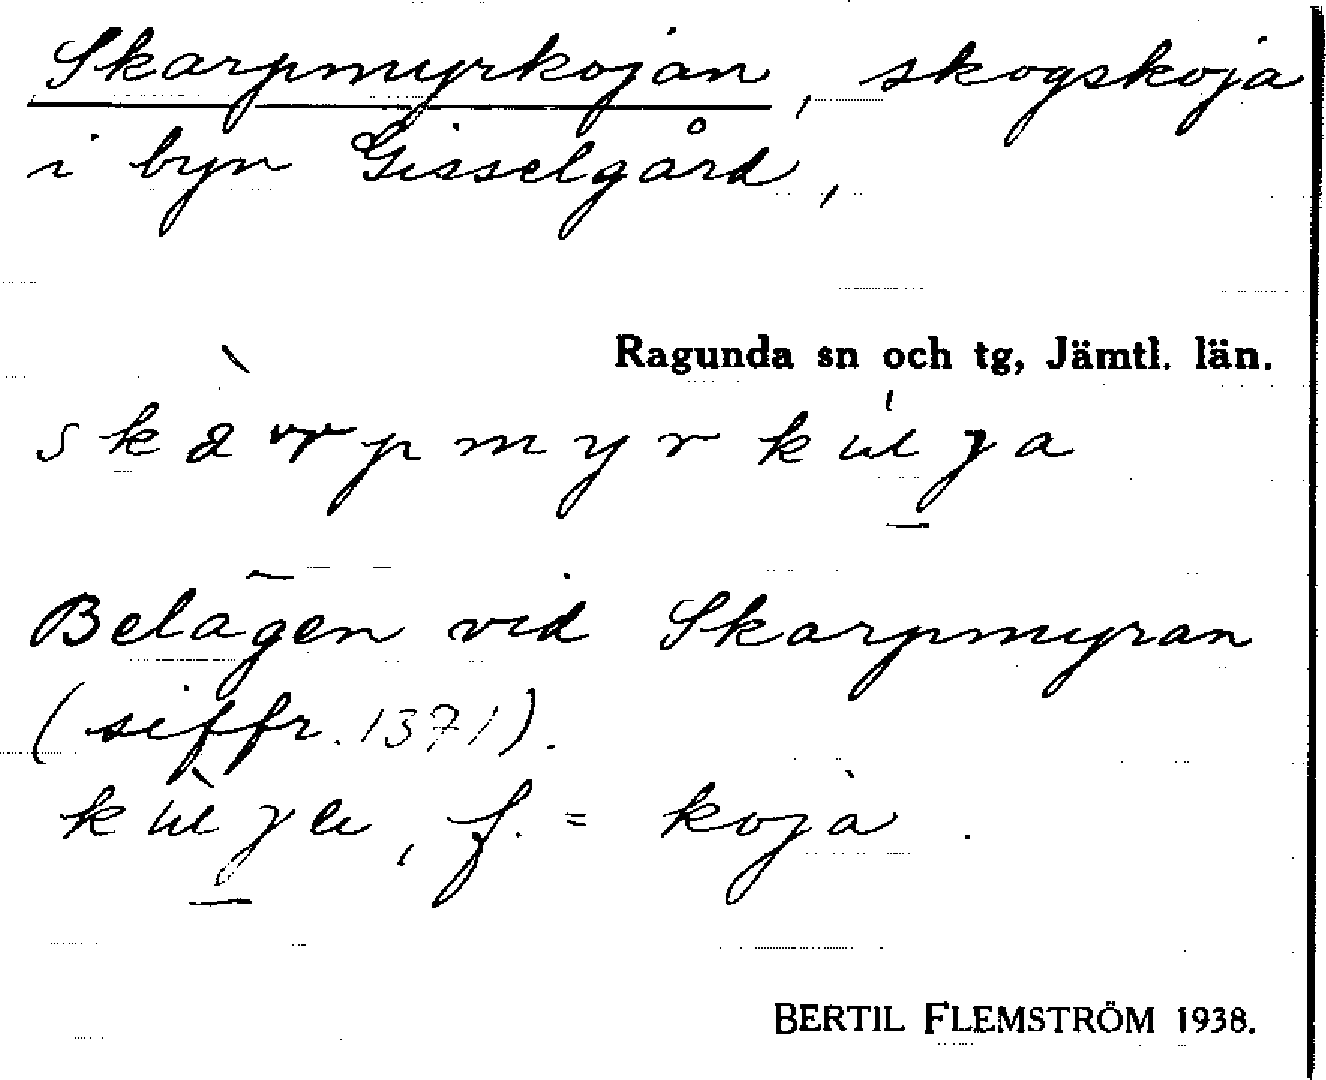 Skarpmyrkojan, skogskoja
i byn Gisselgård,
Ragunda sn och tg, Jämtl. län.
Belägen vid Skarpmyran
(siffr. 1371).
f. = koja.
BERTIL FLEMSTRÖM 1938.